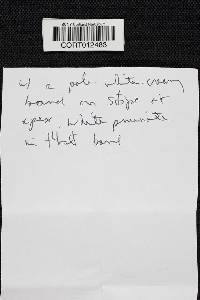 CORT012483
w/ a pale white-creamy
band on stipe at
apex, white pruinate
in that band